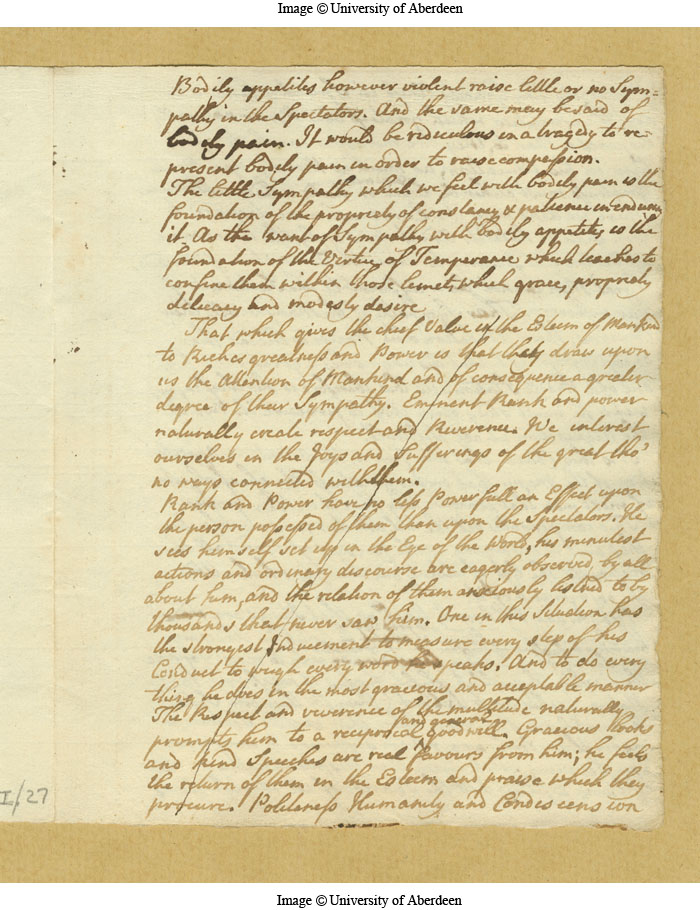 Image © University of Aberdeen
Bodily appetites however violent raise little or no Sym=
pathy in the Spectators. And the same may be said of
bodily pain. It would be ridiculous in a tragedy to re=
present bodily pain in order to raise compassion.
The little Sympathy which we feel with bodily pain is the
foundation of the propriety of constancy & patience in enduring
it. As the want of Sympathy with bodily appetites is the
foundation of the Virtue of Temperance which teaches to
confine them within those limets which grace, propriety
delicacy and modesty desire
That which gives the chief Value to the Esteem of Mankind
to Riches greatness and Power is that they draw upon
us the Attention of Mankind and of consequence a greater
degree of their Sympathy. Eminent Rank and power
naturally create respect and Reverence. We interest
ourselves in the Joys and Sufferings of the great tho'
no ways connected with them.
Rank and Power have no less Powerfull an Effect upon
the person possessed of them than upon the Spectators. He
sees himself set up in the Eye of the World, his minutest
actions and ordinary discourse are eagerly observed, by all
about him, and the relation of them anxiously listned to by
thousands that never saw him. One in this Situation has
the strongest Inducement to measure every step of his
Conduct to weigh every word he speaks. And to do every
thing he does in the most gracious and acceptable manner
The Respect and reverence of the multitude naturally
prompts him to a reciprocal and general goodwill. Gracious looks
and kind Speeches are real favours from him; he feels
the return of them in the Esteem and praise which they
procure. Politeness Humanity and Condescension
I/27
Image © University of Aberdeen